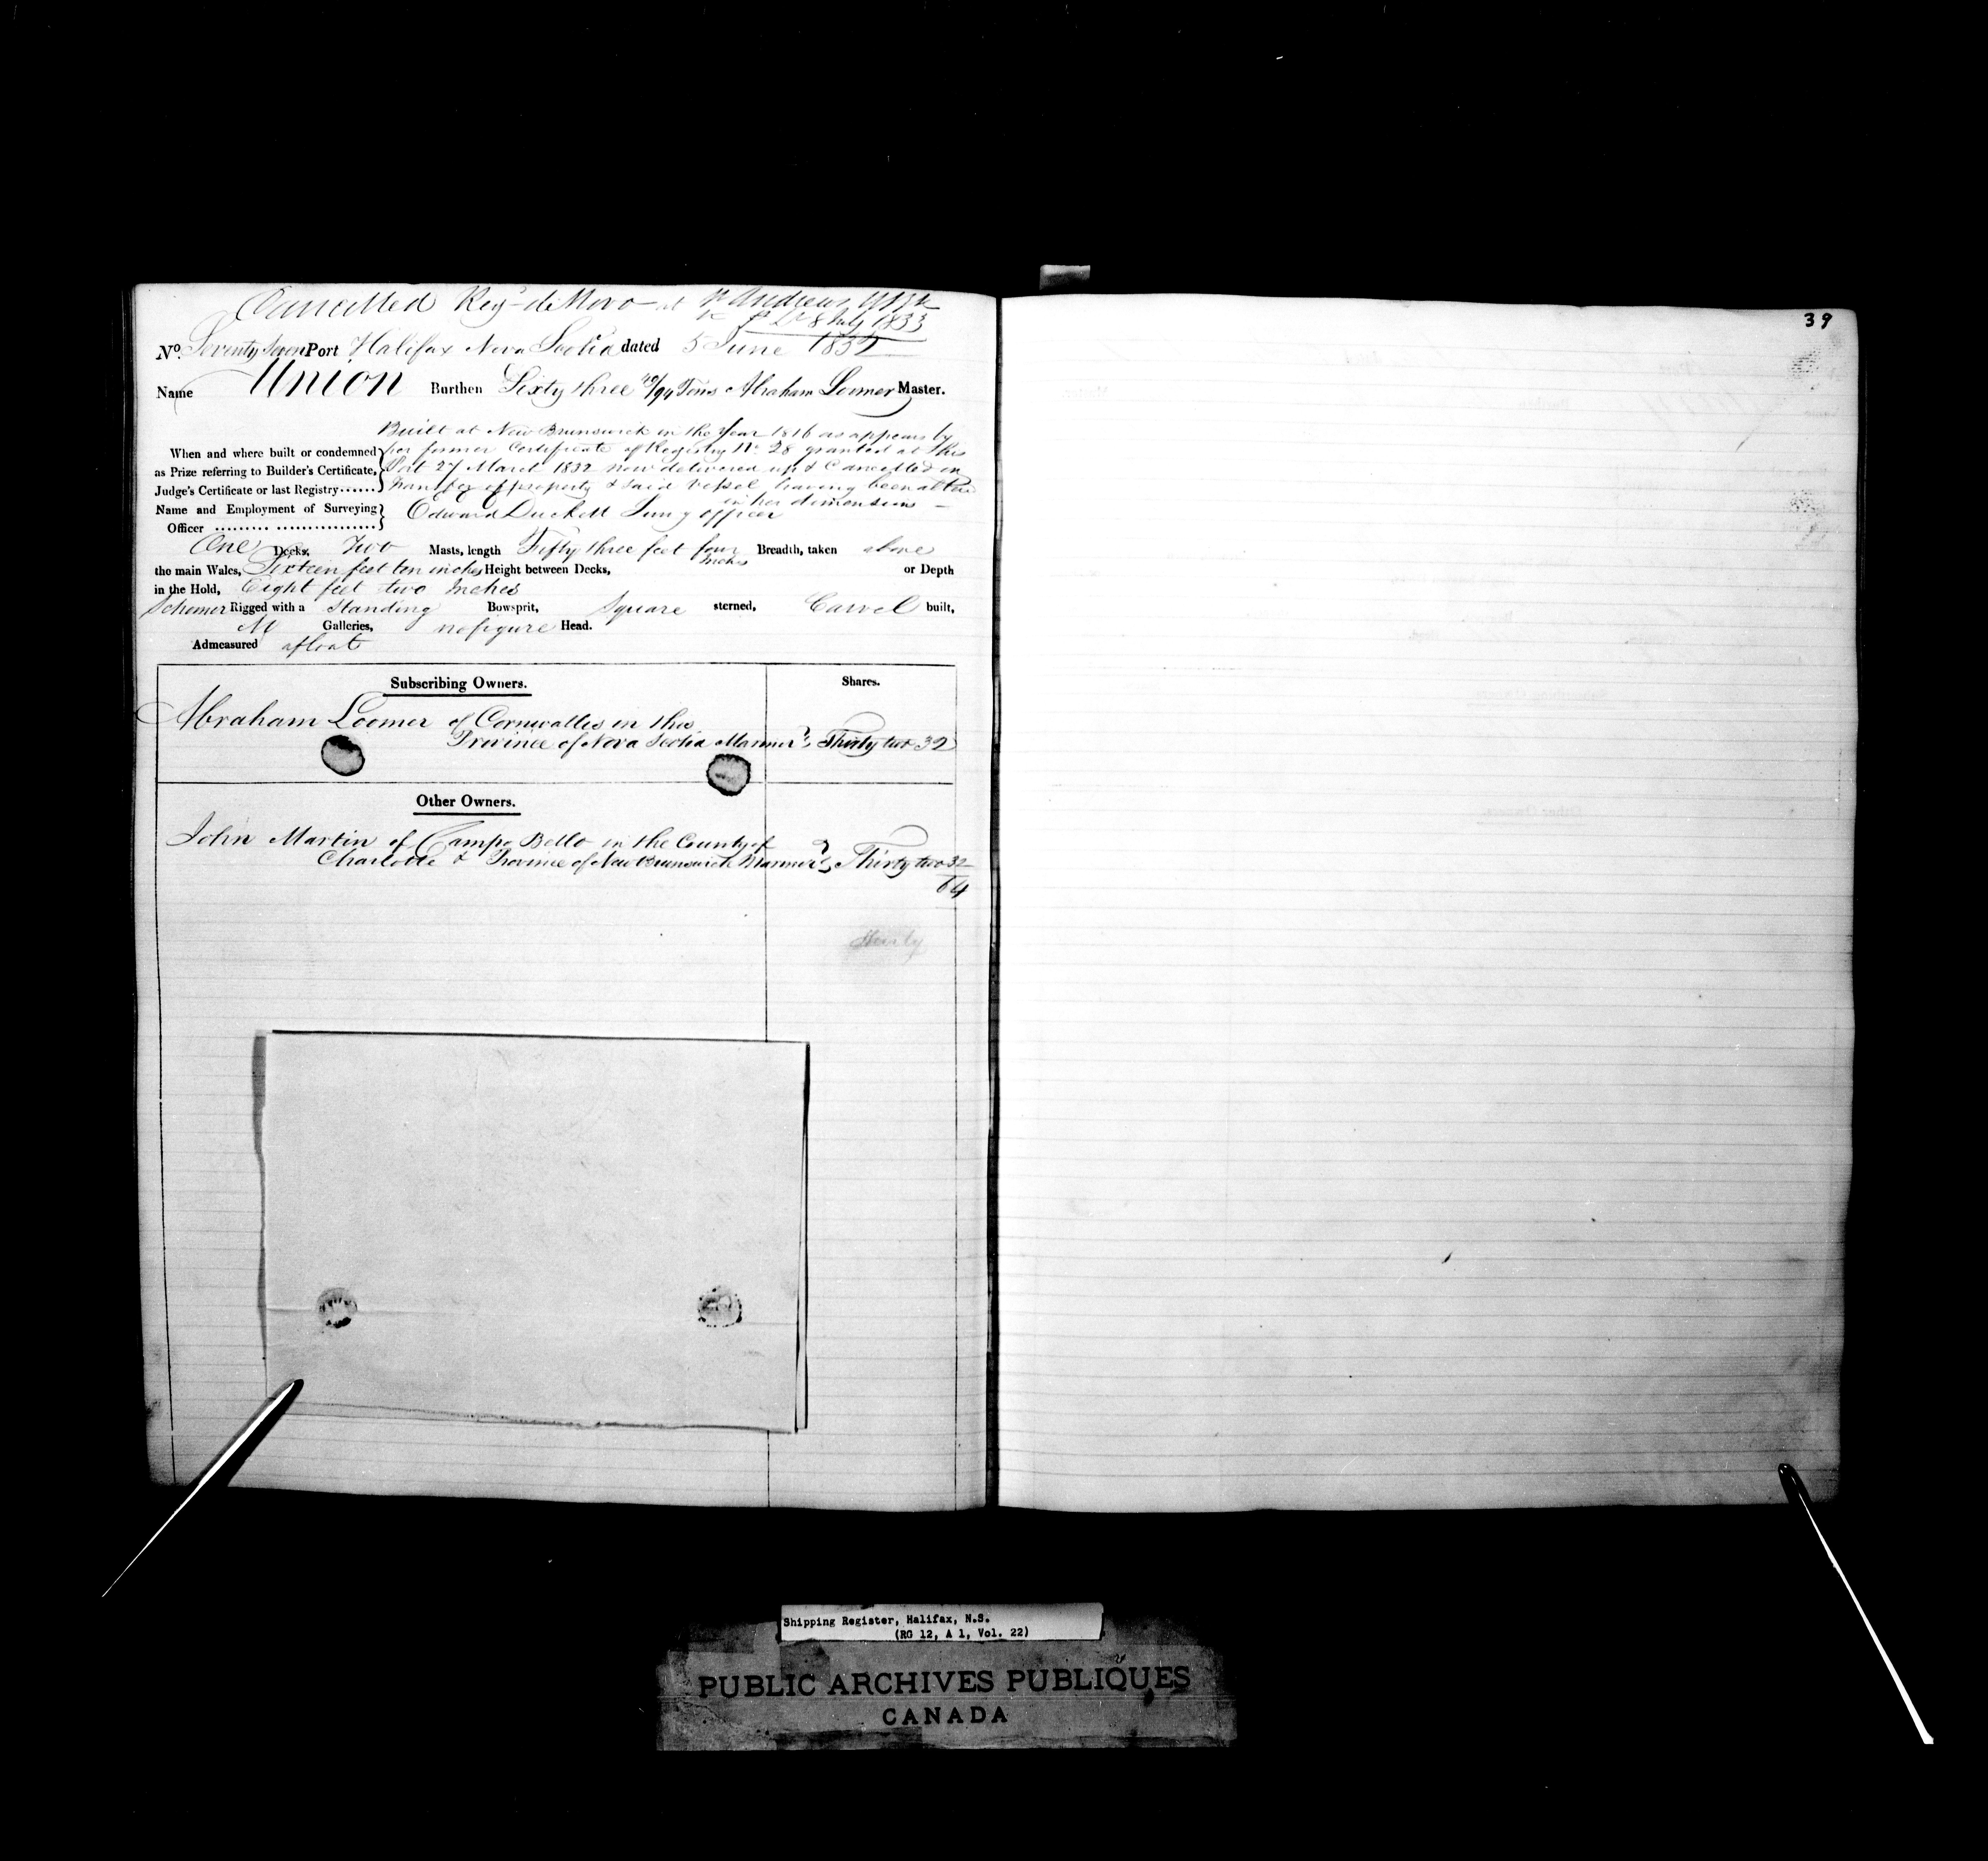 Cancelled Reg. de Novo at St Andrews
8 July 1833
39
No. Seventy Seven Port Halifax Nova Scotia dated 5 June 1832
Name Union Burthen Sixty three 40/94 Tons Abraham Loomer Master.
Built at New Brunswick in the Year 1816 as appears by
When and where built or condemned per former Certificate of Registry No. 28 granted at this
as Prize referring to Builder's Certificate, Port 27 March 1832 now delivered up & Cancelled on
Judge's Certificate or last Registry...... Transfer of property & said Vessel having been altered
in her dimensions
Name and Employment of Surveying Edward Duckett Survg officer
Officer ......... ................
One Decks, Two Masts, length Fifty three feet four Inches Breadth, taken above
the main Wales, Sixteen feet ten inches Height between Decks, or Depth
in the Hold, Eight feet two Inches
Schooner Rigged with a Standing Bowsprit, Square sterned, Carvel built,
Galleries, no figure Head.
Admeasured afloat
Subscribing Owners. Shares.
Abraham Loomer of Cornwallis in the
Province of Nova Scotia Mariner Thirty two 32
Other Owners.
John Martin of Campo Bello in the County of
Charlotte & Province of New Brunswick Mariner Thirty two 32
64
Thirty
Shipping Register, Halifax, N.S.
(RG 12, A 1, Vol. 22)
PUBLIC ARCHIVES PUBLIQUES
CANADA